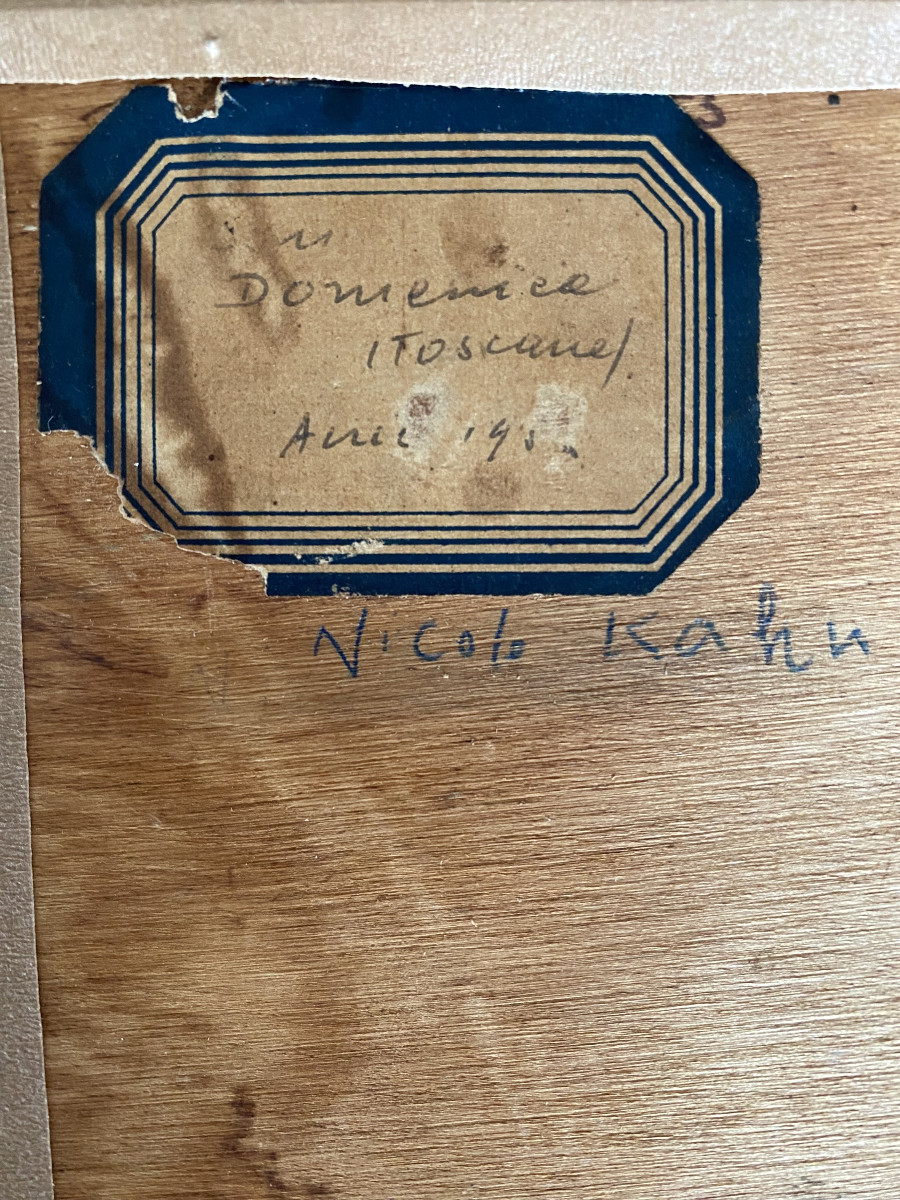 Domenica
(Toscane)
Avril 19
Nicolo Kahn